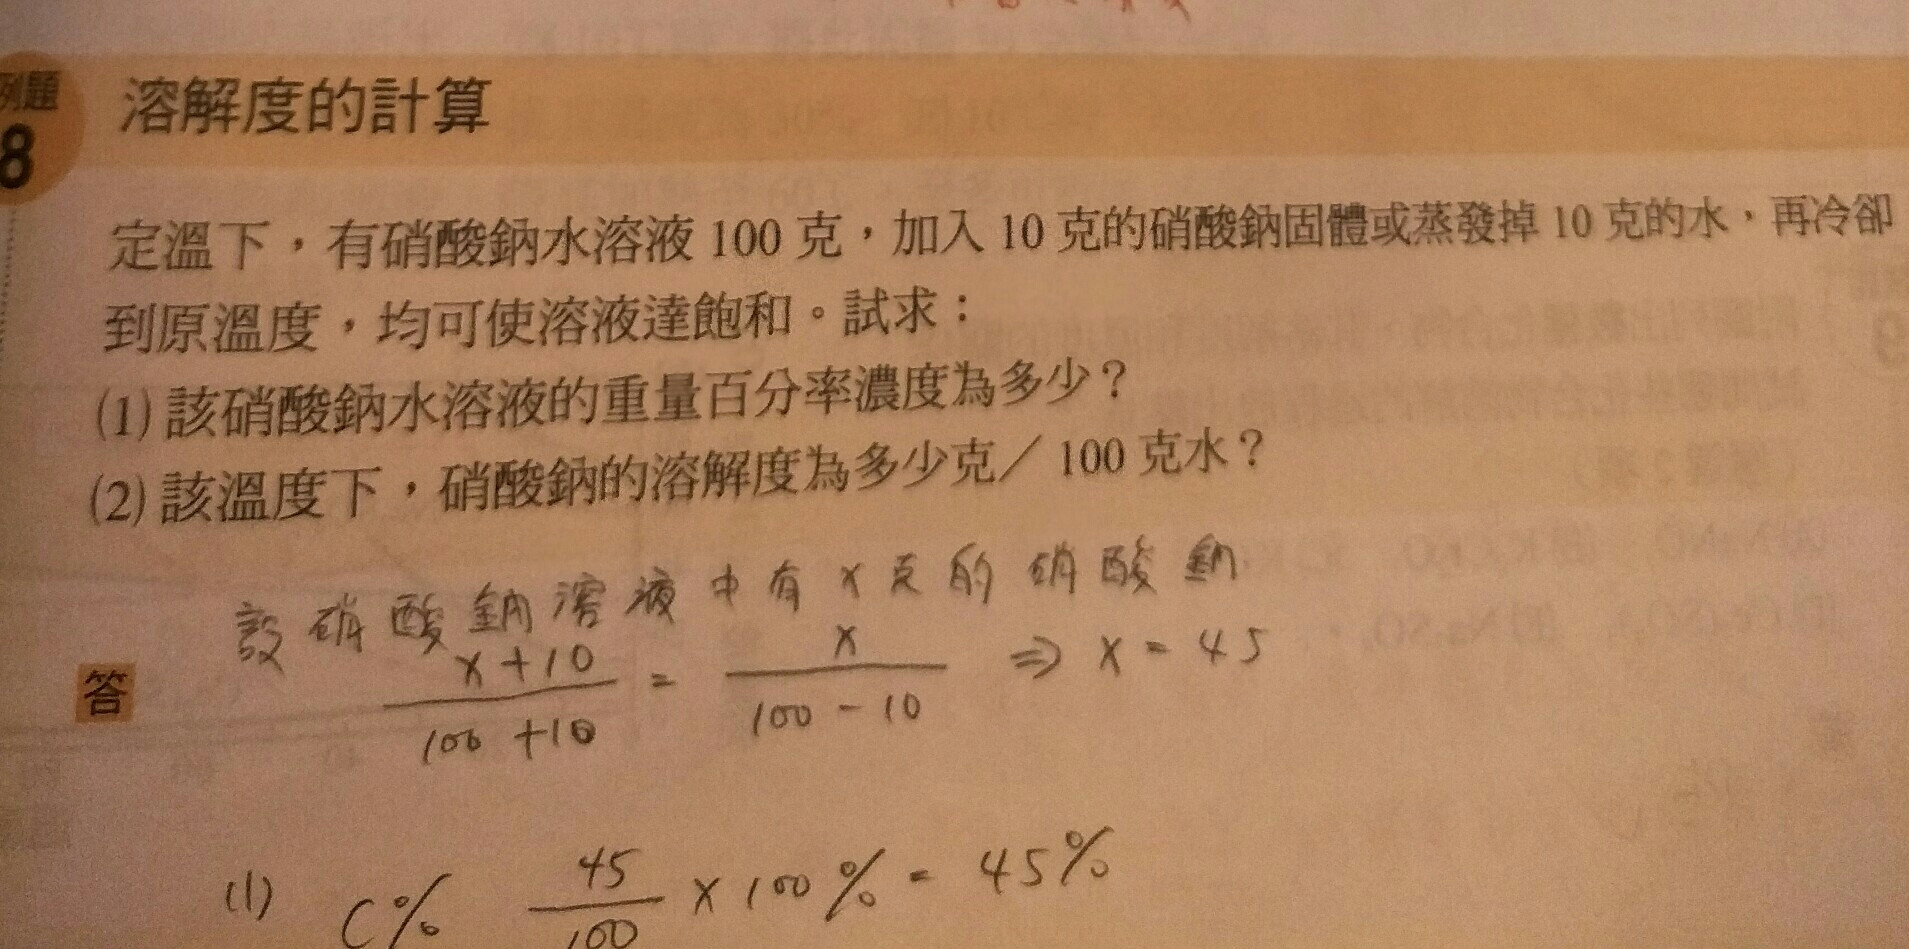 例題
8
溶解度的計算
定溫下，有硝酸鈉水溶液 100 克，加入 10 克的硝酸鈉固體或蒸發掉 10 克的水，再冷卻
到原溫度，均可使溶液達飽和。試求：
(1) 該硝酸鈉水溶液的重量百分率濃度為多少？
(2) 該溫度下，硝酸鈉的溶解度為多少克／ 100 克水？
設硝酸鈉溶液中有 x 克的硝酸鈉
答
x+10 / 100+10 = x / 100-10 ⇒ x = 45
(1) C% 45/100 x 100% = 45%